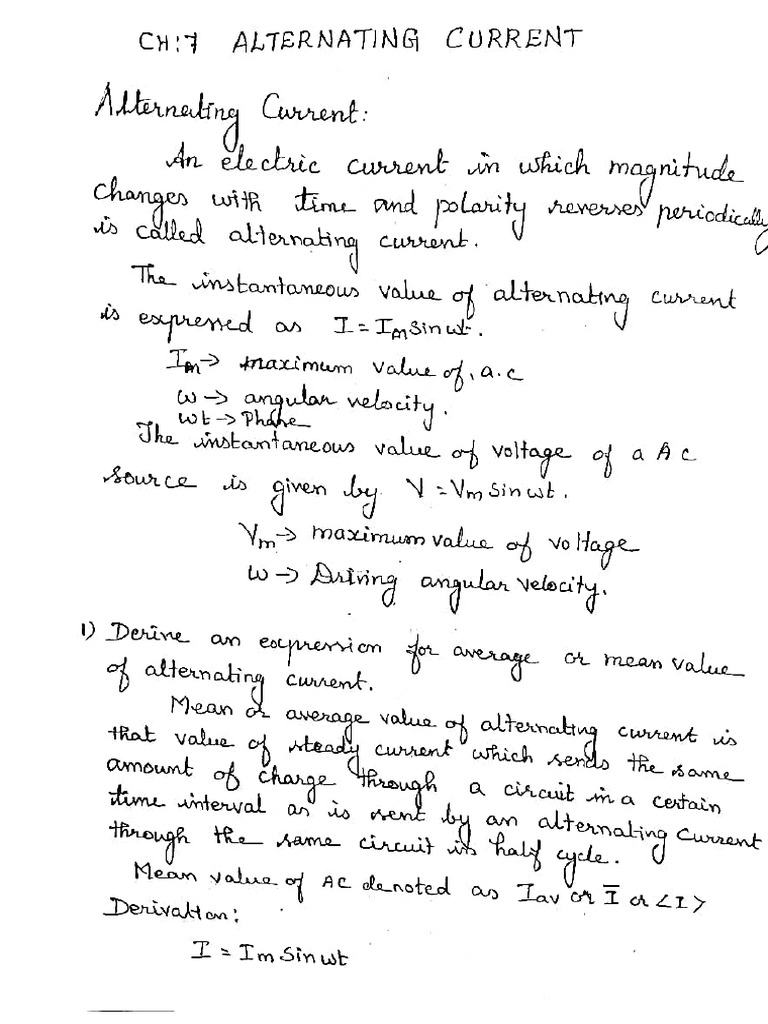 CH:7 ALTERNATING CURRENT
Alternating Current:
An electric current in which magnitude
changes with time and polarity reverses periodically
is called alternating current.
The instantaneous value of alternating current
is expressed as I = Im Sin wt.
Im → maximum value of, a.c
ω → angular velocity.
wt → Phase
The instantaneous value of voltage of a AC
source is given by V = Vm Sin wt.
Vm → maximum value of voltage
ω → Driving angular velocity.
1) Derive an expression for average or mean value
of alternating current.
Mean or average value of alternating current is
that value of steady current which sends the same
amount of charge through a circuit in a certain
time interval as is sent by an alternating Current
through the same circuit in half cycle.
Mean value of AC denoted as Iav or Ī or <I>
Derivation:
I = Im Sin wt